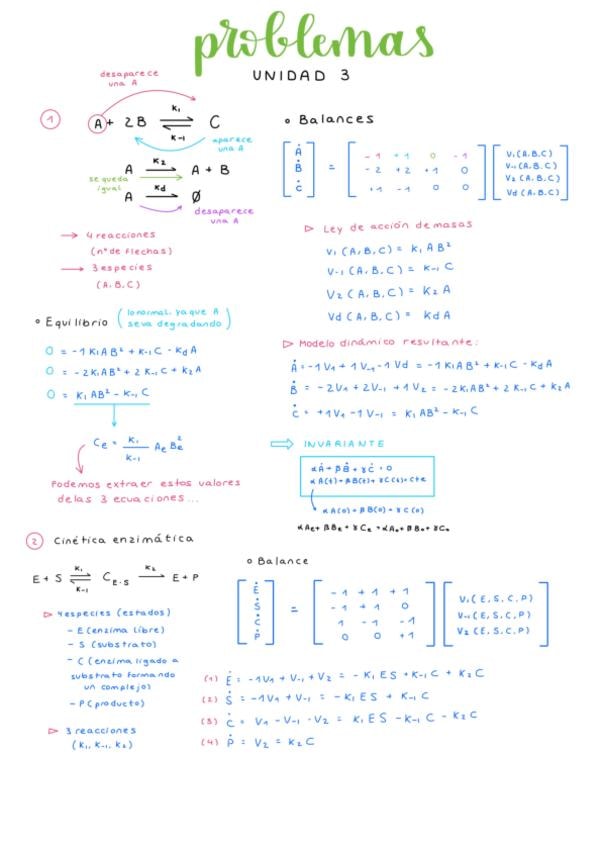 problemas
UNIDAD 3
desaparece
una A
1
A + 2B ⇌ C
K₁
K-1
aparece
una A
A → A + B
K₂
se queda
igual
A → Ø
Kd
desaparece
una A
→ 4 reacciones
(nº de flechas)
→ 3 especies
(A, B, C)
o Balances
[Ȧ Ḃ Ċ] =
-1 +1 0 -1
-2 +2 +1 0
+1 -1 0 0
V₁(A,B,C)
V-1(A,B,C)
V₂(A,B,C)
Vd(A,B,C)
▷ Ley de acción de masas
V₁(A,B,C) = K₁AB²
V-1(A,B,C) = K-1 C
V₂(A,B,C) = K₂A
Vd(A,B,C) = KdA
o Equilibrio (lo normal, ya que A
se va degradando)
0 = -1K₁AB² + K-1C - KdA
0 = -2K₁AB² + 2K-1C + K₂A
0 = K₁AB² - K-1C
Ce = K₁/K-1 AeBe²
Podemos extraer estos valores
de las 3 ecuaciones...
▷ Modelo dinámico resultante:
Ȧ = -1V₁ + 1V-1 - 1Vd = -1K₁AB² + K-1C - KdA
Ḃ = -2V₁ + 2V-1 + 1V₂ = -2K₁AB² + 2K-1C + K₂A
Ċ = +1V₁ - 1V-1 = K₁AB² - K-1C
⇒ INVARIANTE
αȦ + βḂ + γĊ = 0
αA(t) + βB(t) + γC(t) = cte
αA(0) + βB(0) + γC(0)
αAe + βBe + γCe = αA₀ + βB₀ + γC₀
2 Cinética enzimática
E + S ⇌ C E·S → E + P
K₁
K-1
K₂
▷ 4 especies (estados)
- E (enzima libre)
- S (substrato)
- C (enzima ligado a
substrato formando
un complejo)
- P (producto)
▷ 3 reacciones
(K₁, K-1, K₂)
o Balance
[Ė Ṡ Ċ Ṗ] =
-1 +1 +1
-1 +1 0
1 -1 -1
0 0 +1
V₁(E,S,C,P)
V-1(E,S,C,P)
V₂(E,S,C,P)
(1) Ė = -1V₁ + V-1 + V₂ = -K₁ES + K-1C + K₂C
(2) Ṡ = -1V₁ + V-1 = -K₁ES + K-1C
(3) Ċ = V₁ - V-1 - V₂ = K₁ES - K-1C - K₂C
(4) Ṗ = V₂ = K₂C